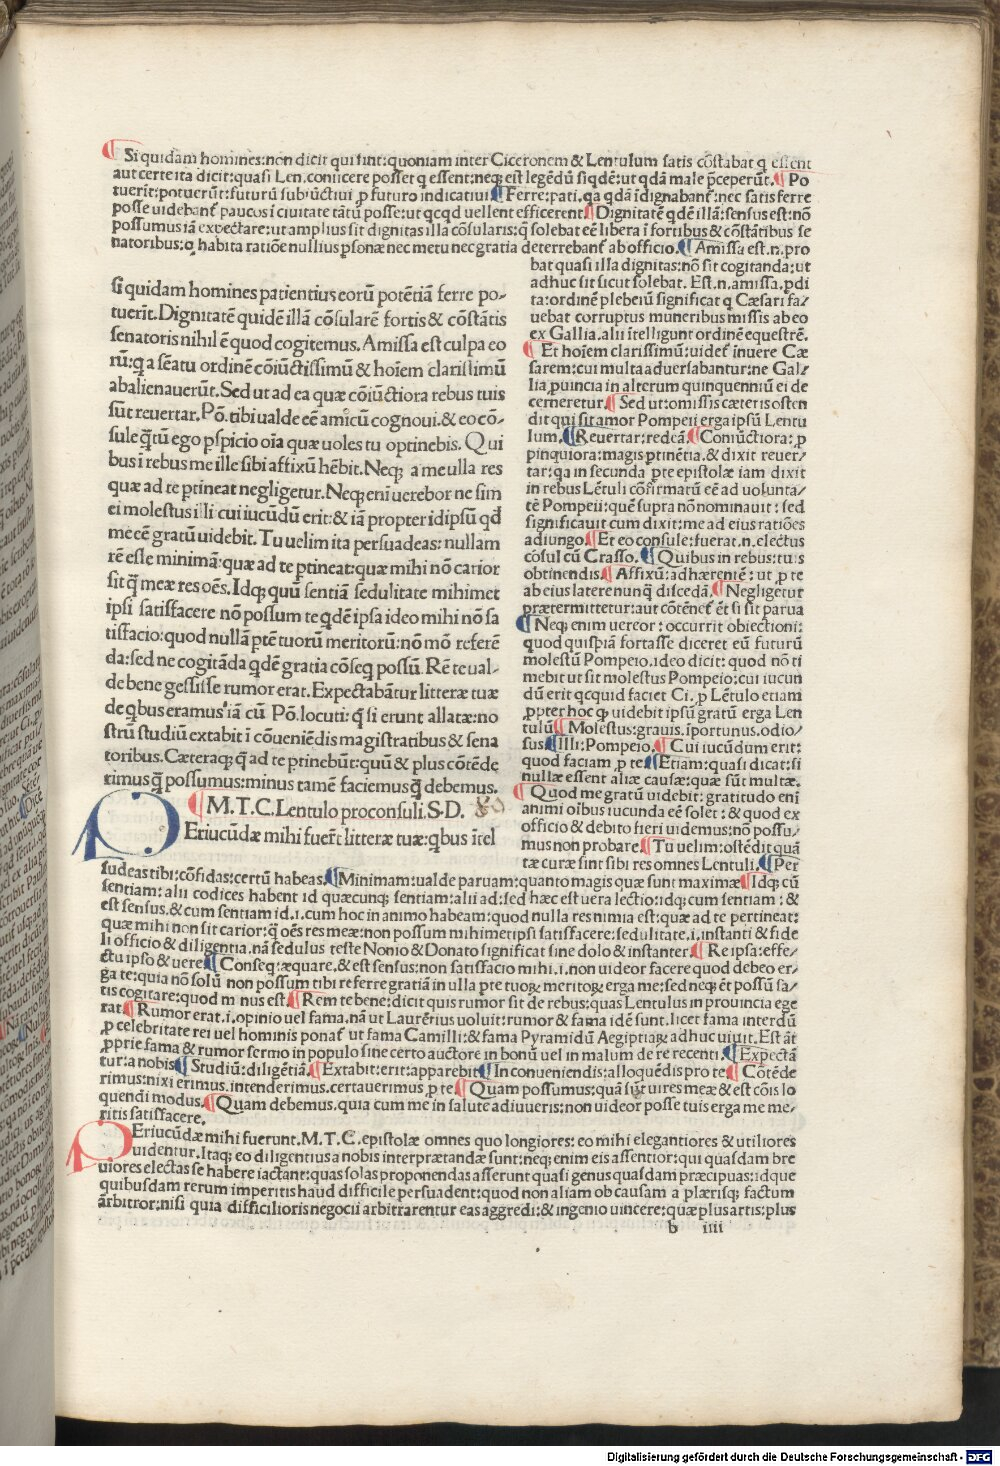 Si quidam homines:non dicit qui sint:quoniam inter Ciceronem & Lentulum satis cõstabat q essent
aut certe ita dicit:quasi Len.coniicere posset q essent:neq; est legẽdũ siqdẽ:ut qdã male p̃ceperũt. Po
tuerit:potuerũt:futurũ subiũctiui ꝓ futuro indicatiui Ferre:pati.qa qdã ĩdignabant̃:nec satis ferre
posse uidebant̃ paucos ĩ ciuitate tãtũ posse:ut qcqd uellent efficerent. Dignitatẽ qdẽ illã:sensus est:nõ
possumus iã expectare:ut amplius sit dignitas illa cõsularis:q̃ solebat eẽ libera ĩ fortibus & cõstãtibus se
natoribus:q habita ratiõe nullius p̱sonæ nec metu nec gratia deterrebant̃ ab officio. Amissa est.n.pro
bat quasi illa dignitas:nõ sit cogitanda:ut
adhuc sit sicut solebat. Est.n.amissa.p̱di
ta:ordinẽ plebeiũ significat q Cæsari fa/
uebat corruptus muneribus missis ab eo
ex Gallia.alii ĩtelligunt ordinẽ equestrẽ.
Et hoĩem clarissimũ:uidet̃ ĩnuere Cæ
sarem:cui multa aduersabantur:ne Gal/
lia ꝓuincia in alterum quinquenniũ ei de
cerneretur. Sed ut:omissis cæteris osten
dit qui sit amor Pompeii erga ipsũ Lentu
lum. Reuertar:redeã. Coniũctiora:ꝓ
pinquiora:magis p̱tinẽtia.& dixit reuer/
tar:qa in secunda p̱te epistolæ iam dixit
in rebus Lẽtuli cõfirmatũ eẽ ad uolunta/
tẽ Pompeii:quẽ supra nõ nominauit: sed
significauit cum dixit:me ad eius ratiões
adiungo. Et eo consule:fuerat.n.electus
cõsul cũ Crasso. Quibus in rebus:tuis
obtinendis. Affixũ:adhærentẽ: ut ꝓ te
ab eius latere nunq̃ discedã. Negligetur
prætermittetur:aut cõtẽnet̃ ẽt si sit parua
Neq; enim uereor: occurrit obiectioni:
quod quispiã fortasse diceret eũ futurũ
molestũ Pompeio.ideo dicit: quod nõ ti
mebit ut sit molestus Pompeio:cui iucun
dũ erit qcquid faciet Ci.ꝓ Lẽtulo etiam
ꝓpter hoc qꝫ uidebit ipsũ gratũ erga Len
tulũ Molestus:grauis.ĩportunus.odio/
sus Illi:Pompeio. Cui iucũdum erit:
quod faciam ꝓ te Etiam:quasi dicat:si
nullæ essent aliæ causæ:quæ sũt multæ.
Quod me gratũ uidebit:gratitudo enĩ
animi oĩbus iucunda eẽ solet: & quod ex
officio & debito fieri uidemus:nõ possu/
mus non probare. Tu uelim:ostẽdit quã
tæ curæ sint sibi res omnes Lentuli. Per
si quidam homines patientius eorũ potẽtiã ferre po-
tuerĩt.Dignitatẽ quidẽ illã cõsularẽ fortis & cõstãtis
senatoris nihil ẽ quod cogitemus.Amissa est culpa eo
rũ:q a sẽatu ordinẽ cõiũctissimũ & hoĩem clarissimũ
abalienauerũt.Sed ut ad ea quæ cõiũctiora rebus tuis
sũt reuertar.Põ.tibi ualde eẽ amicũ cognoui.& eo cõ-
sule q̃tũ ego p̱spicio oĩa quæ uoles tu optinebis. Qui
bus ĩ rebus me ille sibi affixũ hẽbit.Neq; a me ulla res
quæ ad te p̱tineat negligetur.Neq; enĩ uerebor ne sim
ei molestus illi cui iucũdũ erit:& iã propter id ipsũ qd
me eẽ gratũ uidebit. Tu uelim ita persuadeas: nullam
rẽ esse minimã:quæ ad te p̱tineat:quæ mihi nõ carior
sit q̃ meæ res oẽs.Idq; quũ sentiã sedulitate mihimet
ipsi satisfacere nõ possum te qdẽ ipsa ideo mihi nõ sa
tisfacio:quod nullã p̱tẽ tuorũ meritorũ:nõ mõ referẽ
da:sed ne cogitãda qdẽ gratia cõseq possũ. Rẽ te ual-
de bene gessisse rumor erat.Expectabãtur litteræ tuæ
de qbus eramus iã cũ Põ.locuti: q̃ si erunt allatæ:no
strũ studiũ extabit ĩ cõueniẽdis magistratibus & sena
toribus.Cæteraq; q̃ ad te p̱tinebũt:quũ & plus cõtẽde
rimus q̃ possumus:minus tamẽ faciemus q̃ debemus.
M.T.C.Lentulo proconsuli.S.D.
PEriucũdæ mihi fuerĩt litteræ tuæ:qbus ĩtel
suadeas tibi:cõfidas:certũ habeas. Minimam:ualde paruam:quanto magis quæ sunt maximæ Idq; cũ
sentiam: alii codices habent id quæcunq; sentiam:alii ad:sed hæc est uera lectio:idq; cum sentiam : &
est sensus.& cum sentiam id.i.cum hoc in animo habeam:quod nulla res nimia est:quæ ad te pertineat:
quæ mihi non sit carior:q̃ oẽs res meæ:non possum mihimet ipsi satisfacere:sedulitate.i.instanti & fide
li officio & diligentia.nã sedulus teste Nonio & Donato significat sine dolo & instanter. Re ipsa:effe/
ctu ipso & uere Conseq:æquare.& est sensus:non satisfacio mihi.i.non uideor facere quod debeo er/
ga te:quia nõ solũ non possum tibi referre gratiã in ulla p̱te tuoꝝ meritoꝝ erga me:sed neq; ẽt possũ sa/
tis cogitare:quod minus est. Rem te bene:dicit quis rumor sit de rebus:quas Lentulus in prouincia ege
rat. Rumor erat.i.opinio uel fama.nã ut Laurẽtius uoluit:rumor & fama idẽ sunt.licet fama interdũ
ꝓ celebritate rei uel hominis ponat̃ ut fama Camilli:& fama Pyramidũ Aegiptiaꝝ adhuc uiuit.Est ãt
ꝓprie fama & rumor sermo in populo sine certo auctore in bonũ uel in malum de re recenti. Expectã
tur:a nobis Studiũ:diligẽtiã. Extabit:erit:apparebit In conueniendis:alloquẽdis pro te Cõtẽde
rimus:nixi erimus.intenderimus.certauerimus ꝓ te Quam possumus:quã sũt uires meæ & est cõis lo
quendi modus. Quam debemus.quia cum me in salute adiuueris:non uideor posse tuis erga me me/
ritis satisfacere.
PEriucũdæ mihi fuerunt.M.T.C.epistolæ omnes quo longiores: eo mihi elegantiores & utiliores
uidentur.Itaq; eo diligentius a nobis interprætandæ sunt:neq; enim eis assentior:qui quasdam bre
uiores electas se habere iactant:quas solas proponendas asserunt quasi genus quasdam præcipuas:idque
quibusdam rerum imperitis haud difficile persuadent:quod non aliam ob causam a plærisq; factum
arbitror:nisi quia difficilioris negocii arbitrarentur eas aggredi:& ingenio uincere:quæ plus artis:plus
b iiii
Digitalisierung gefördert durch die Deutsche Forschungsgemeinschaft - DFG